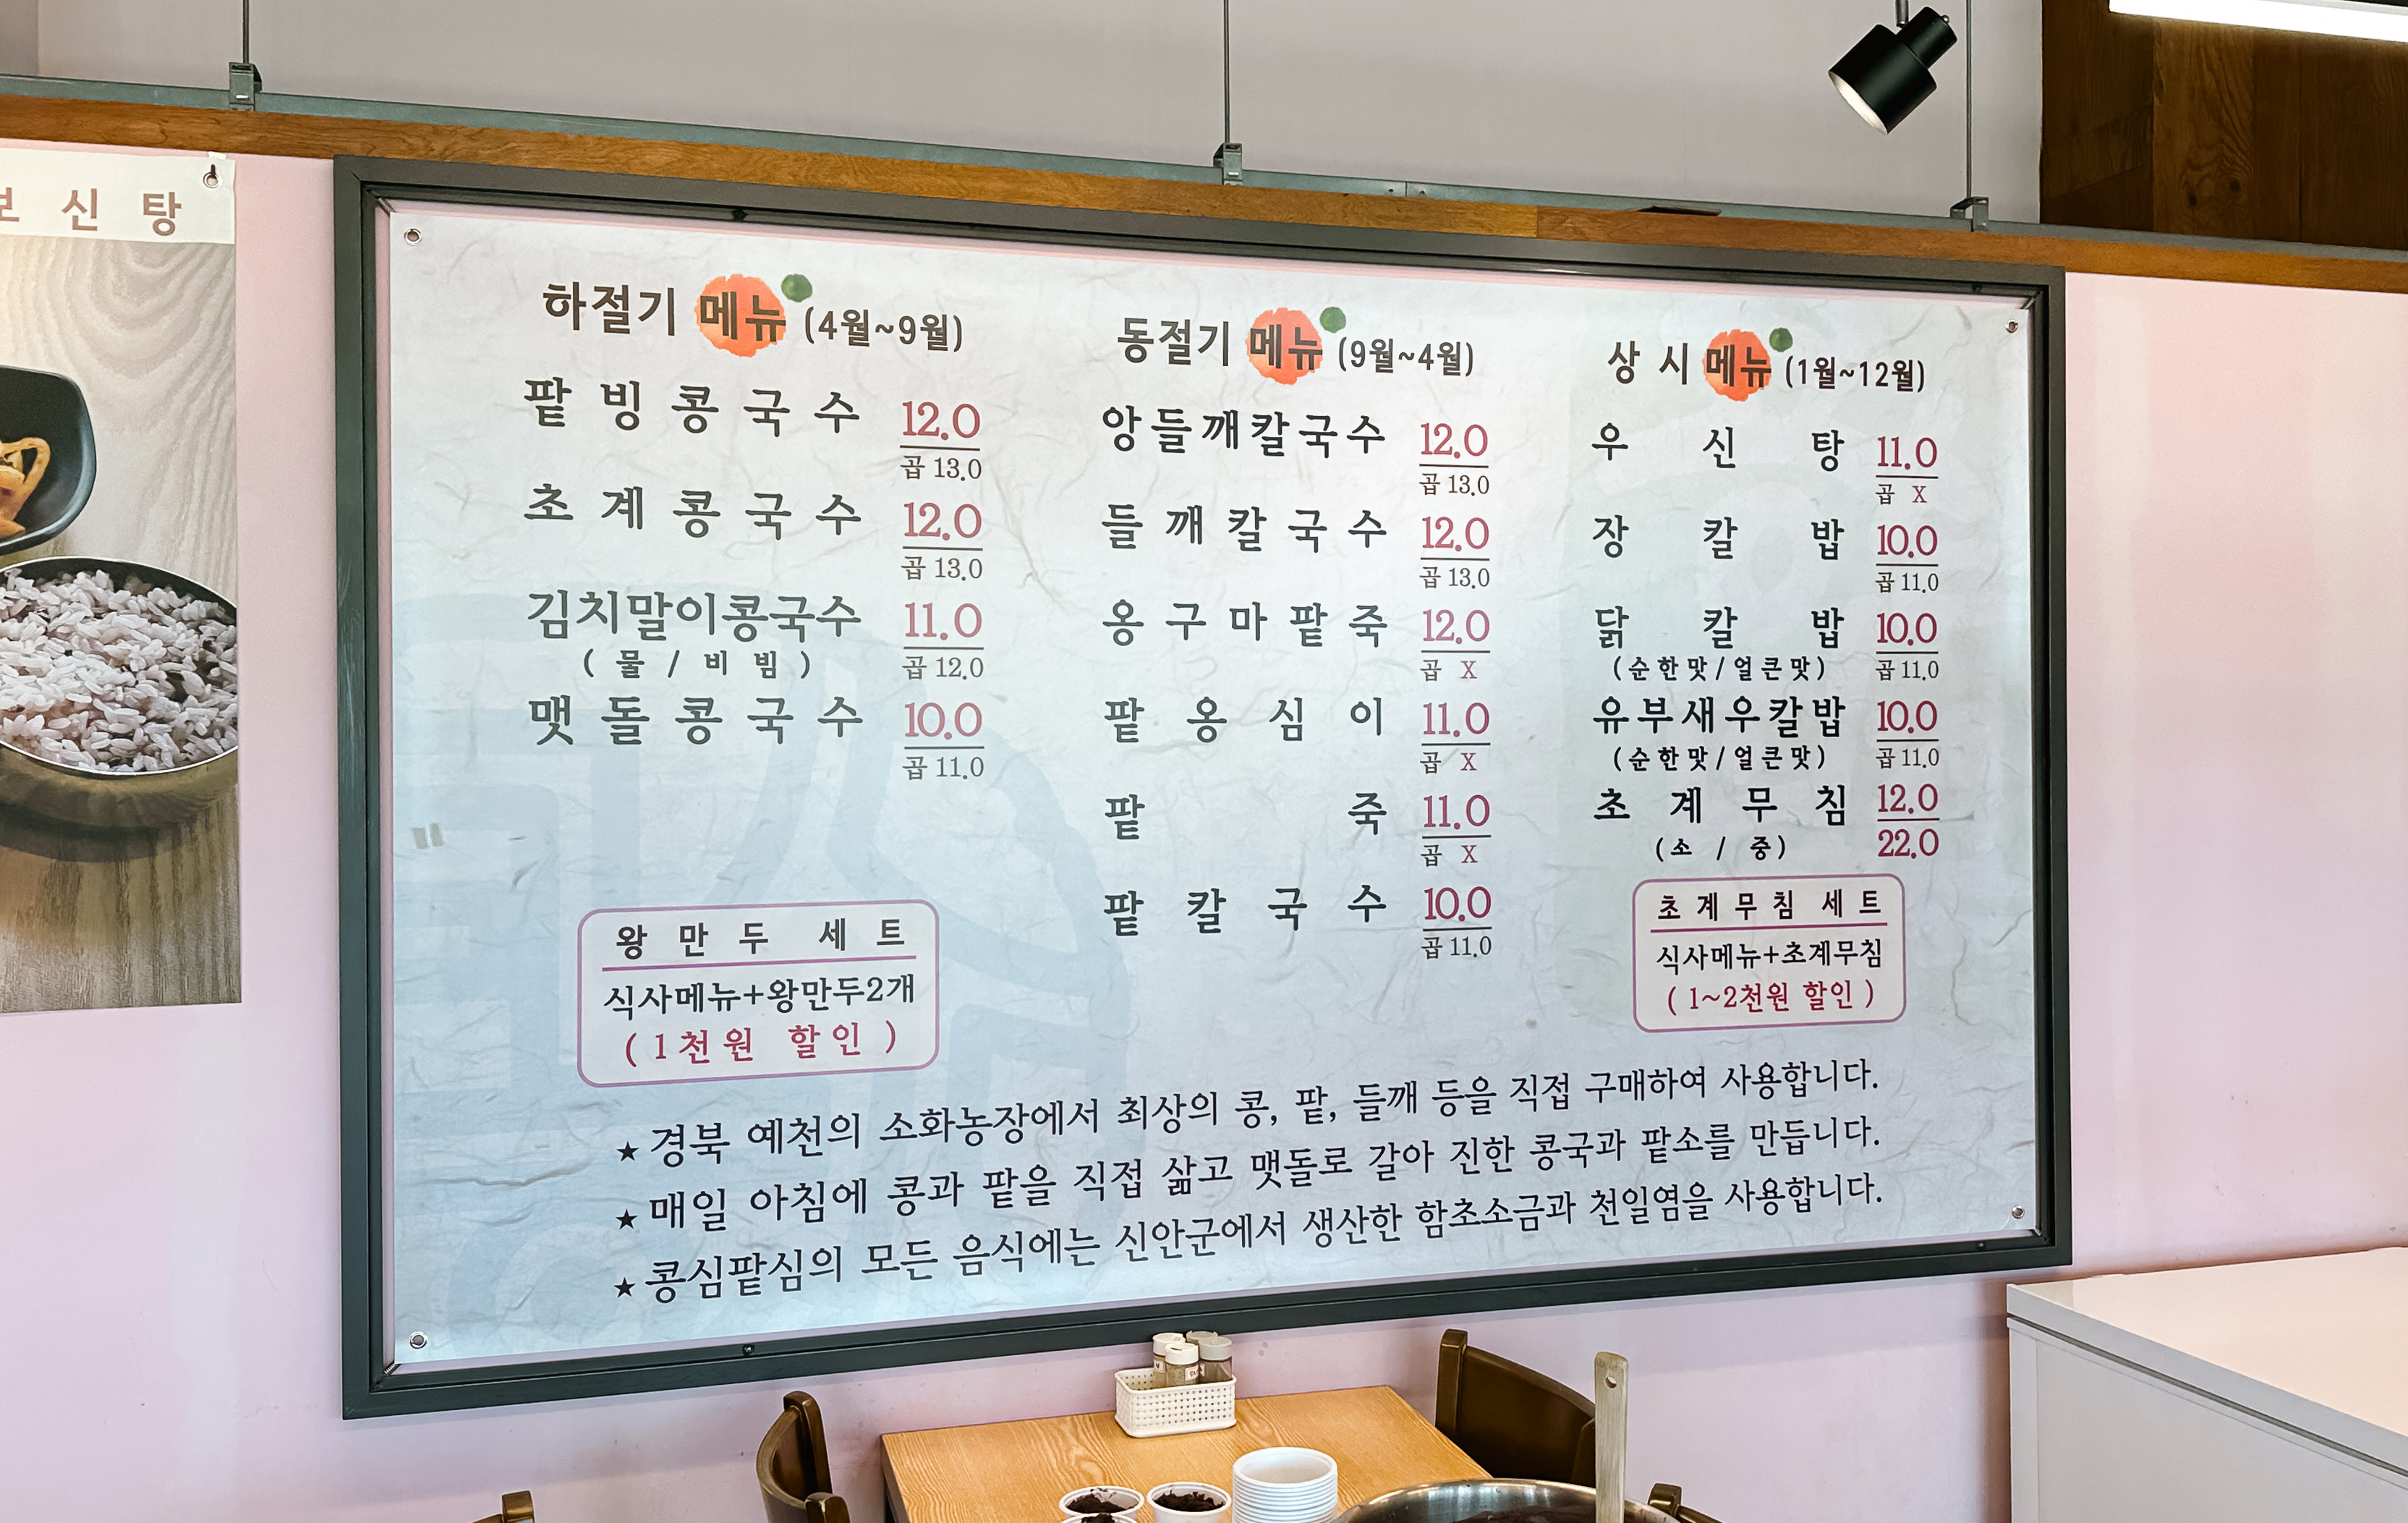 보 신 탕
하절기 메뉴 (4월~9월)
팥빙콩국수 12.0
곱 13.0
초계콩국수 12.0
곱 13.0
김치말이콩국수 11.0
(물/비빔) 곱 12.0
맷돌콩국수 10.0
곱 11.0
왕만두 세트
식사메뉴+왕만두2개
(1천원 할인)
동절기 메뉴 (9월~4월)
앙들깨칼국수 12.0
곱 13.0
들깨칼국수 12.0
곱 13.0
옹구마팥죽 12.0
곱 X
팥옹심이 11.0
곱 X
팥죽 11.0
곱 X
팥칼국수 10.0
곱 11.0
상시 메뉴 (1월~12월)
우신탕 11.0
곱 X
장칼밥 10.0
곱 11.0
닭칼밥 10.0
(순한맛/얼큰맛) 곱 11.0
유부새우칼밥 10.0
(순한맛/얼큰맛) 곱 11.0
초계무침 12.0
(소/중) 22.0
초계무침 세트
식사메뉴+초계무침
(1~2천원 할인)
★ 경북 예천의 소화농장에서 최상의 콩, 팥, 들깨 등을 직접 구매하여 사용합니다.
★ 매일 아침에 콩과 팥을 직접 삶고 맷돌로 갈아 진한 콩국과 팥소를 만듭니다.
★ 콩심팥심의 모든 음식에는 신안군에서 생산한 함초소금과 천일염을 사용합니다.